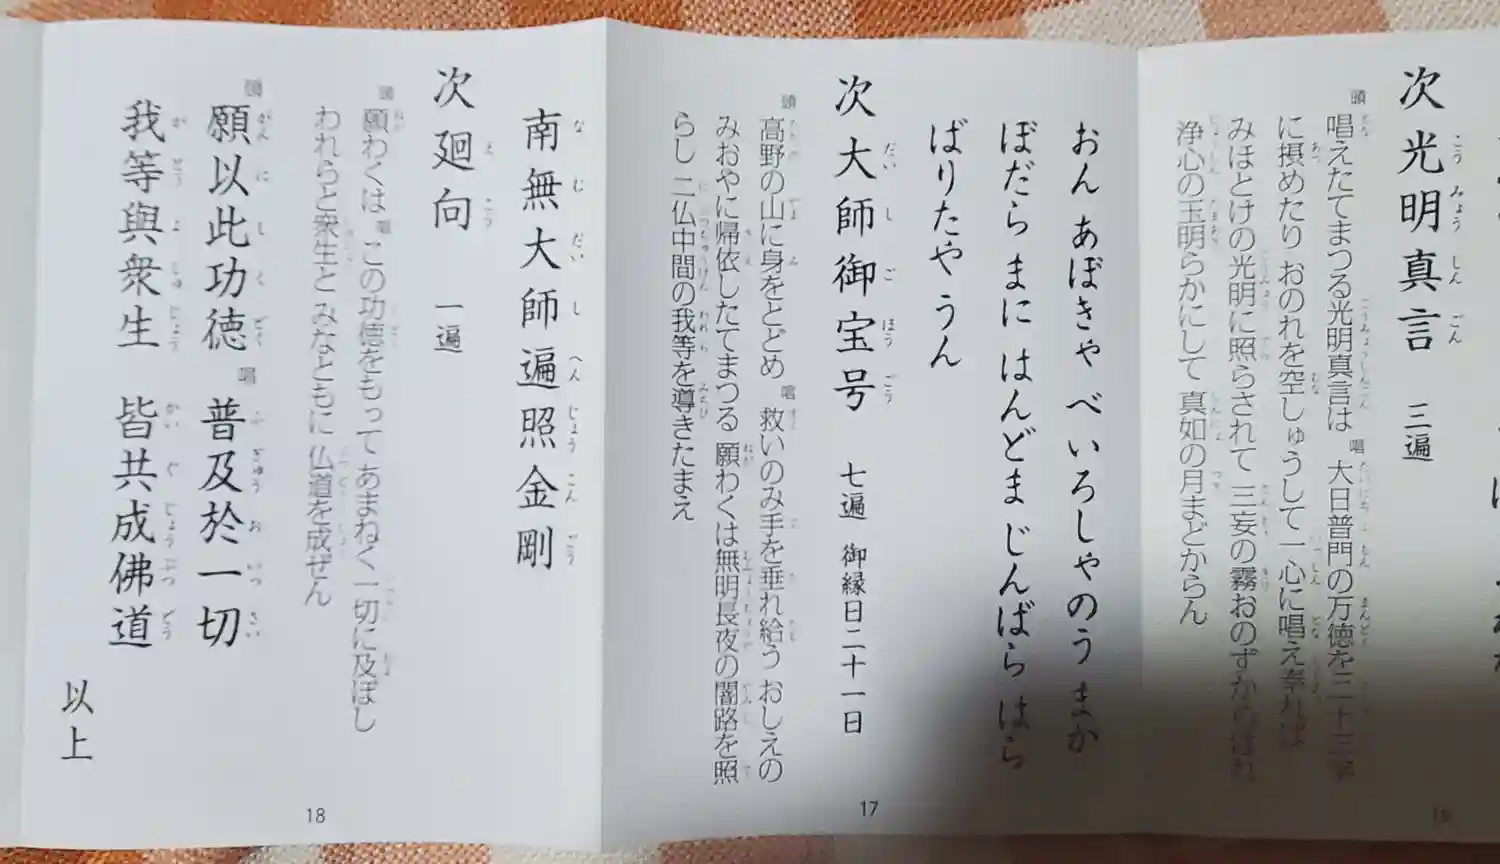 次光明真言 三遍
頭 唱えたてまつる光明真言は 唱 大日普門の万徳を二十三字
に摂めたり おのれを空しゅうして一心に唱え奉れば
みほとけの光明に照らされて 三妄の霧おのずからはれ
浄心の玉明らかにして 真如の月まどからん
16
おん あぼきゃ べいろしゃのう まか
ぼだら まに はんどま じんばら はら
ばりたや うん
次大師御宝号 七遍 御縁日二十一日
頭 高野の山に身をとどめ 唱 救いのみ手を垂れ給う おしえの
みおやに帰依したてまつる 願わくは無明長夜の闇路を照
らし 二仏中間の我等を導きたまえ
17
南無大師遍照金剛
次廻向 一遍
頭 願わくは 唱 この功徳をもって あまねく一切に及ぼし
われらと衆生と みなともに 仏道を成ぜん
頭 願以此功徳 唱 普及於一切
我等與衆生 皆共成佛道
以上
18